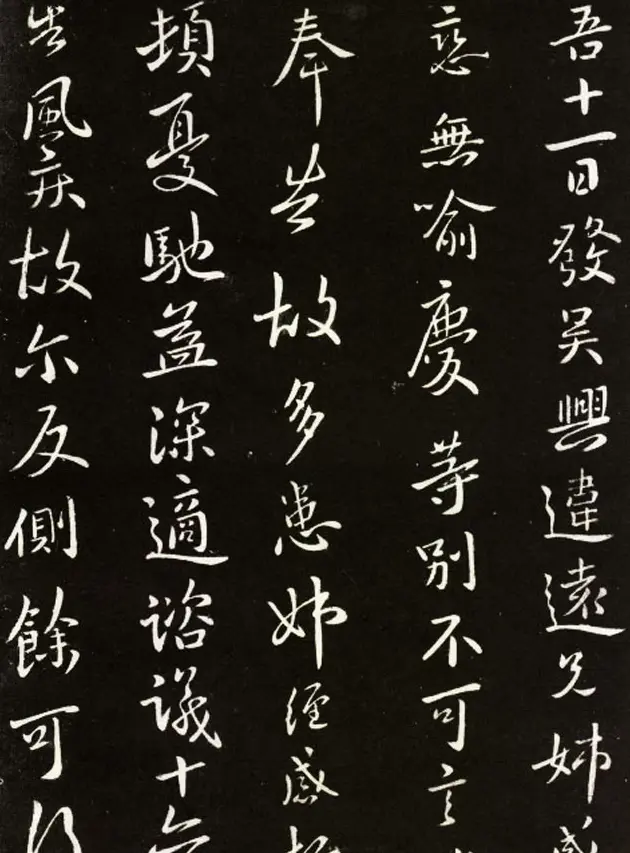 吾十一日發吳興違遠兄姊感
戀無喻慶等別不可言
奉告故多患姊經感
頓憂馳益深適諮議十六
告風疾故尔反側餘可